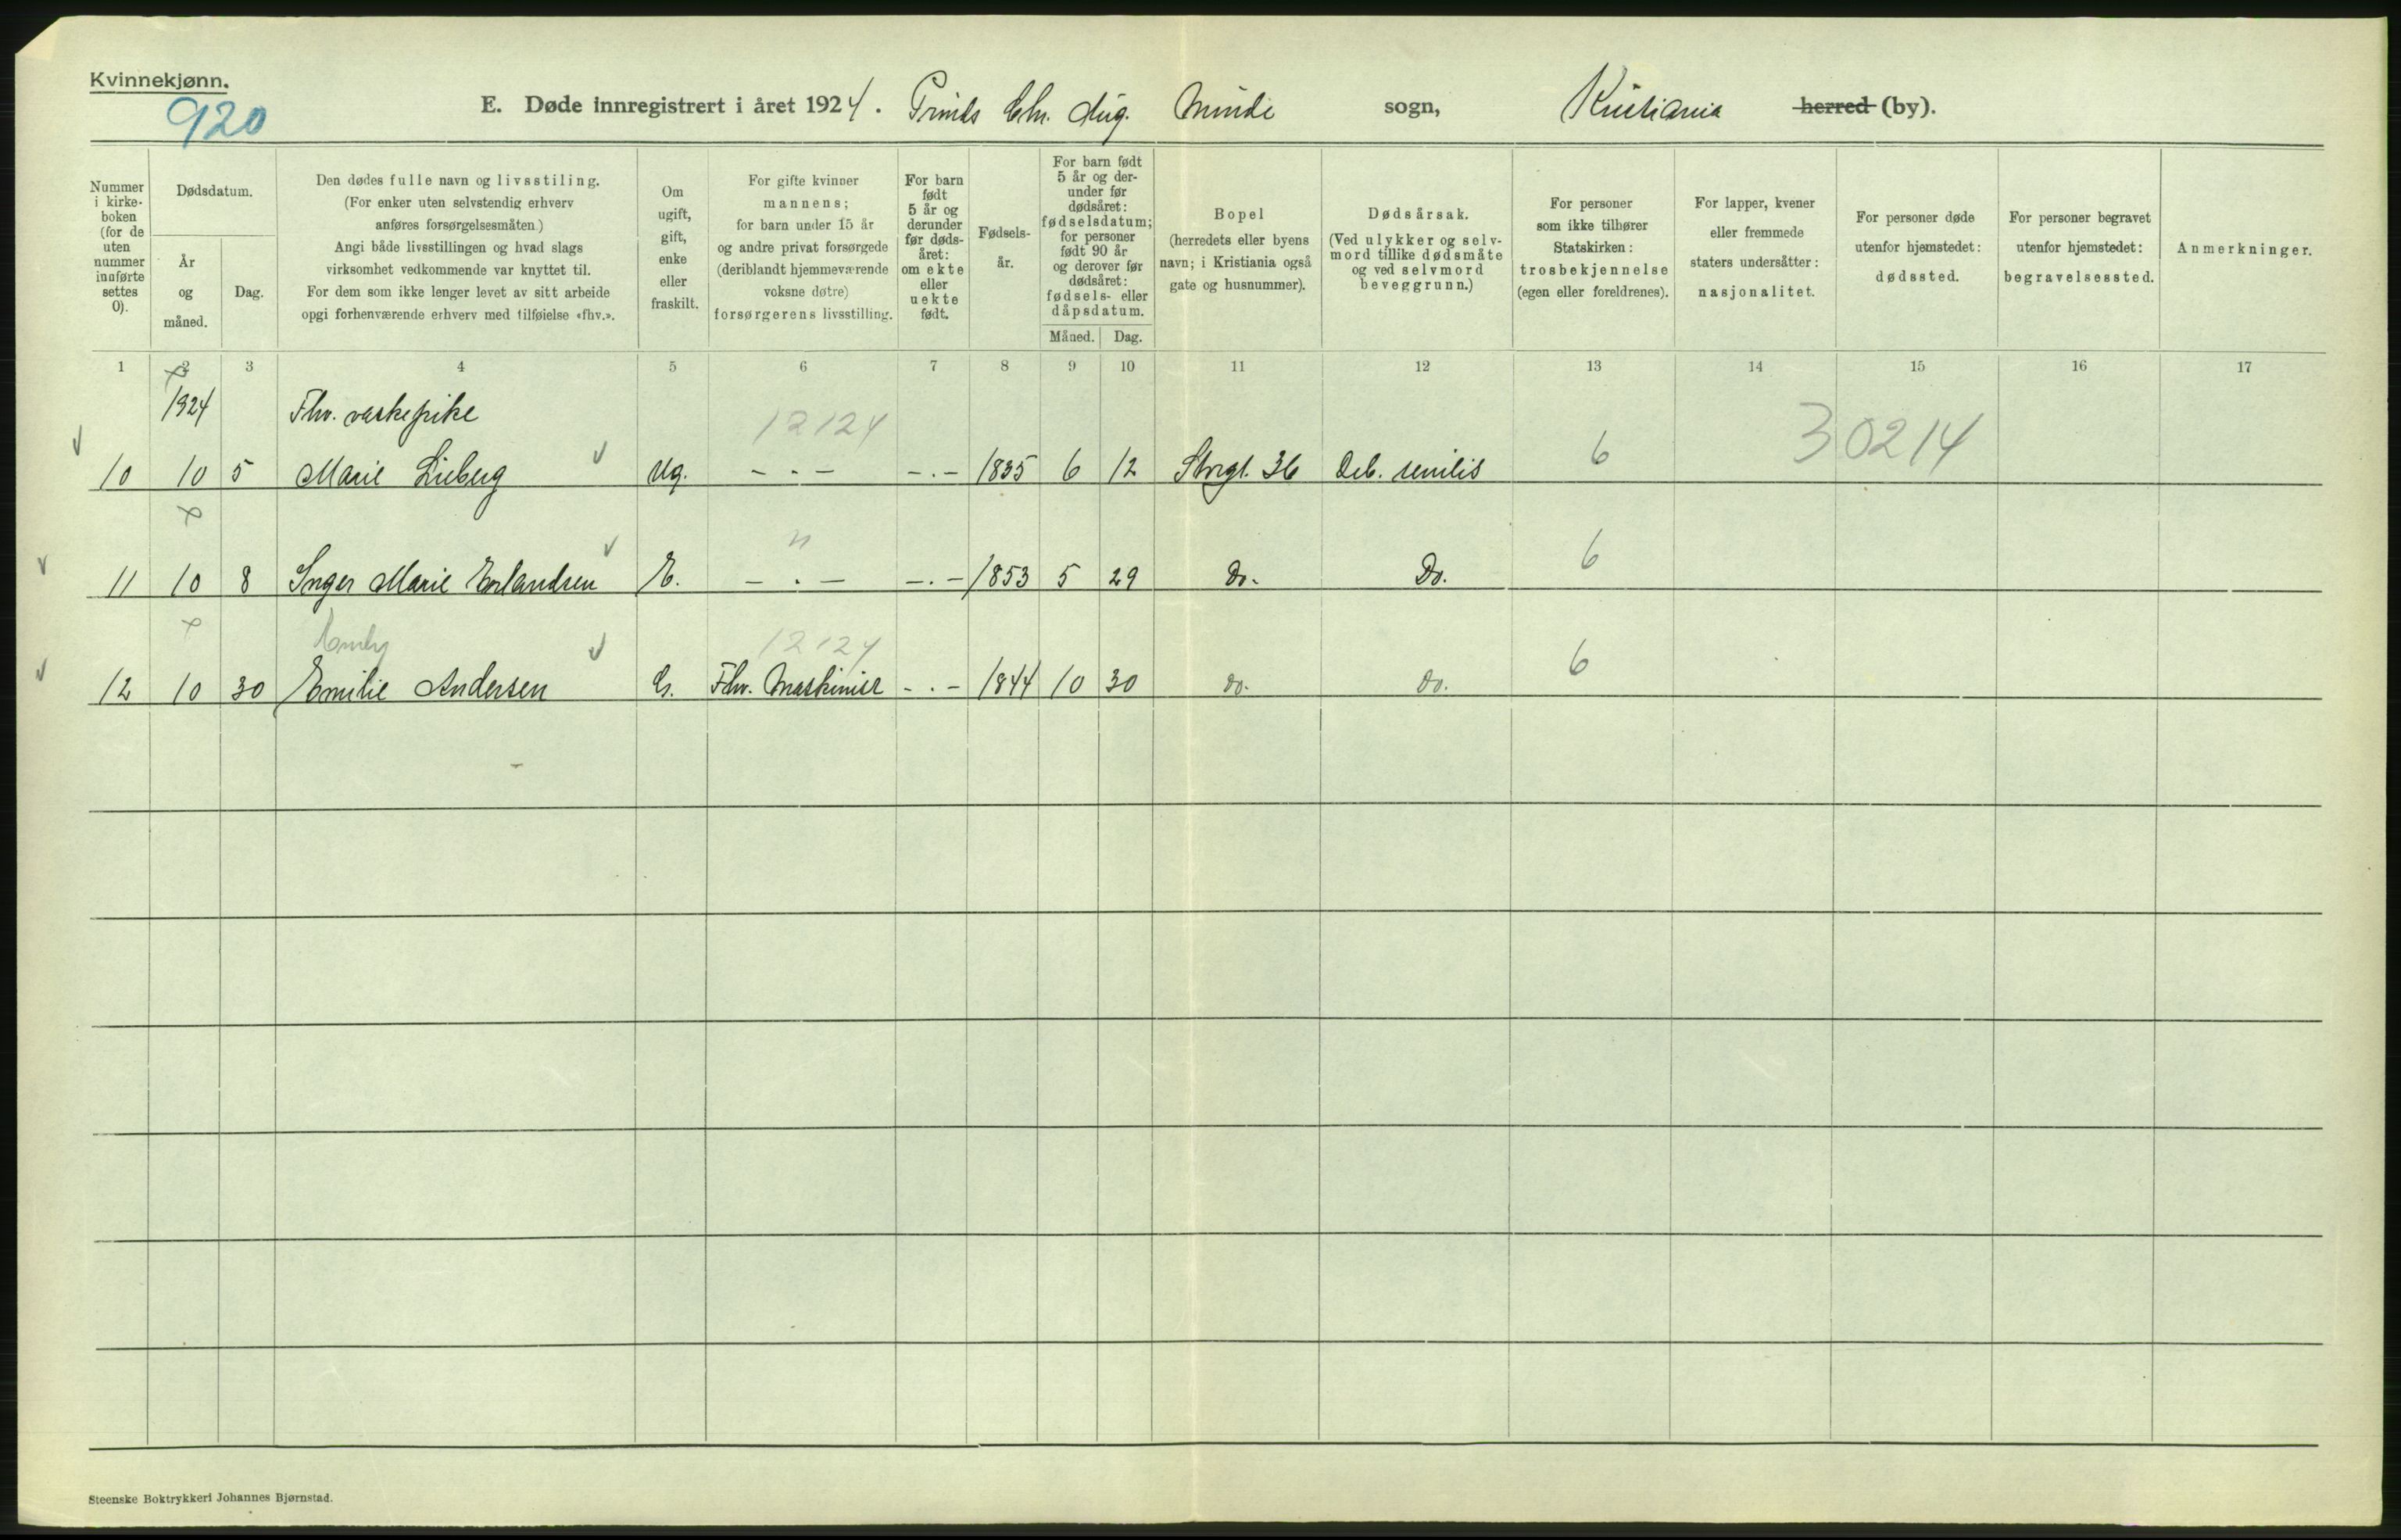 Kvinnekjønn.
920
E. Døde innregistrert i året 1924. Prinds Chr. Aug. Minde sogn, Kristiania herred (by).
Nummer i kirke- boken (for de uten nummer innførte settes 0).
Dødsdatum.
År og måned.
Dag.
Den dødes fulle navn og livsstiling.
(For enker uten selvstendig erhverv
anføres forsørgelsesmåten.)
Angi både livsstillingen og hvad slags
virksomhet vedkommende var knyttet til.
For dem som ikke lenger levet av sitt arbeide
opgi forhenværende erhverv med tilføielse «fhv.».
Om ugift, gift, enke eller fraskilt.
For gifte kvinner
mannens;
for barn under 15 år
og andre privat forsørgede
(deriblandt hjemmeværende
voksne døtre)
forsørgerens livsstilling.
For barn født 5 år og derunder før døds- året: om ekte eller uekte født.
Fødsels- år.
For barn født
5 år og der-
under før
dødsåret:
fødselsdatum;
for personer
født 90 år
og derover før
dødsåret:
fødsels- eller
dåpsdatum.
Måned. Dag.
Bopel
(herredets eller byens
navn; i Kristiania også
gate og husnummer).
Dødsårsak.
(Ved ulykker og selv-
mord tillike dødsmåte
og ved selvmord
beveggrunn.)
For personer
som ikke tilhører
Statskirken:
trosbekjennelse
(egen eller foreldrenes).
For lapper, kvener
eller fremmede
staters undersåtter:
nasjonalitet.
For personer døde
utenfor hjemstedet:
dødssted.
For personer begravet
utenfor hjemstedet:
begravelsessted.
Anmerkninger.
1 2 3 4 5 6 7 8 9 10 11 12 13 14 15 16 17
1924 Fhv. vaskepike
12124 30214
10 10 5 Marie Lieberg Ug. - . - - . - 1835 6 12 Strgt. 36 Deb. senilis 6
"
11 10 8 Inger Marie Erlandsen E. - . - - . - 1853 5 29 Do. Do. 6
Emly 12124
12 10 30 Emilie Andersen G. Fhv. Maskinist - . - 1844 10 30 do. do. 6
Steenske Boktrykkeri Johannes Bjørnstad.